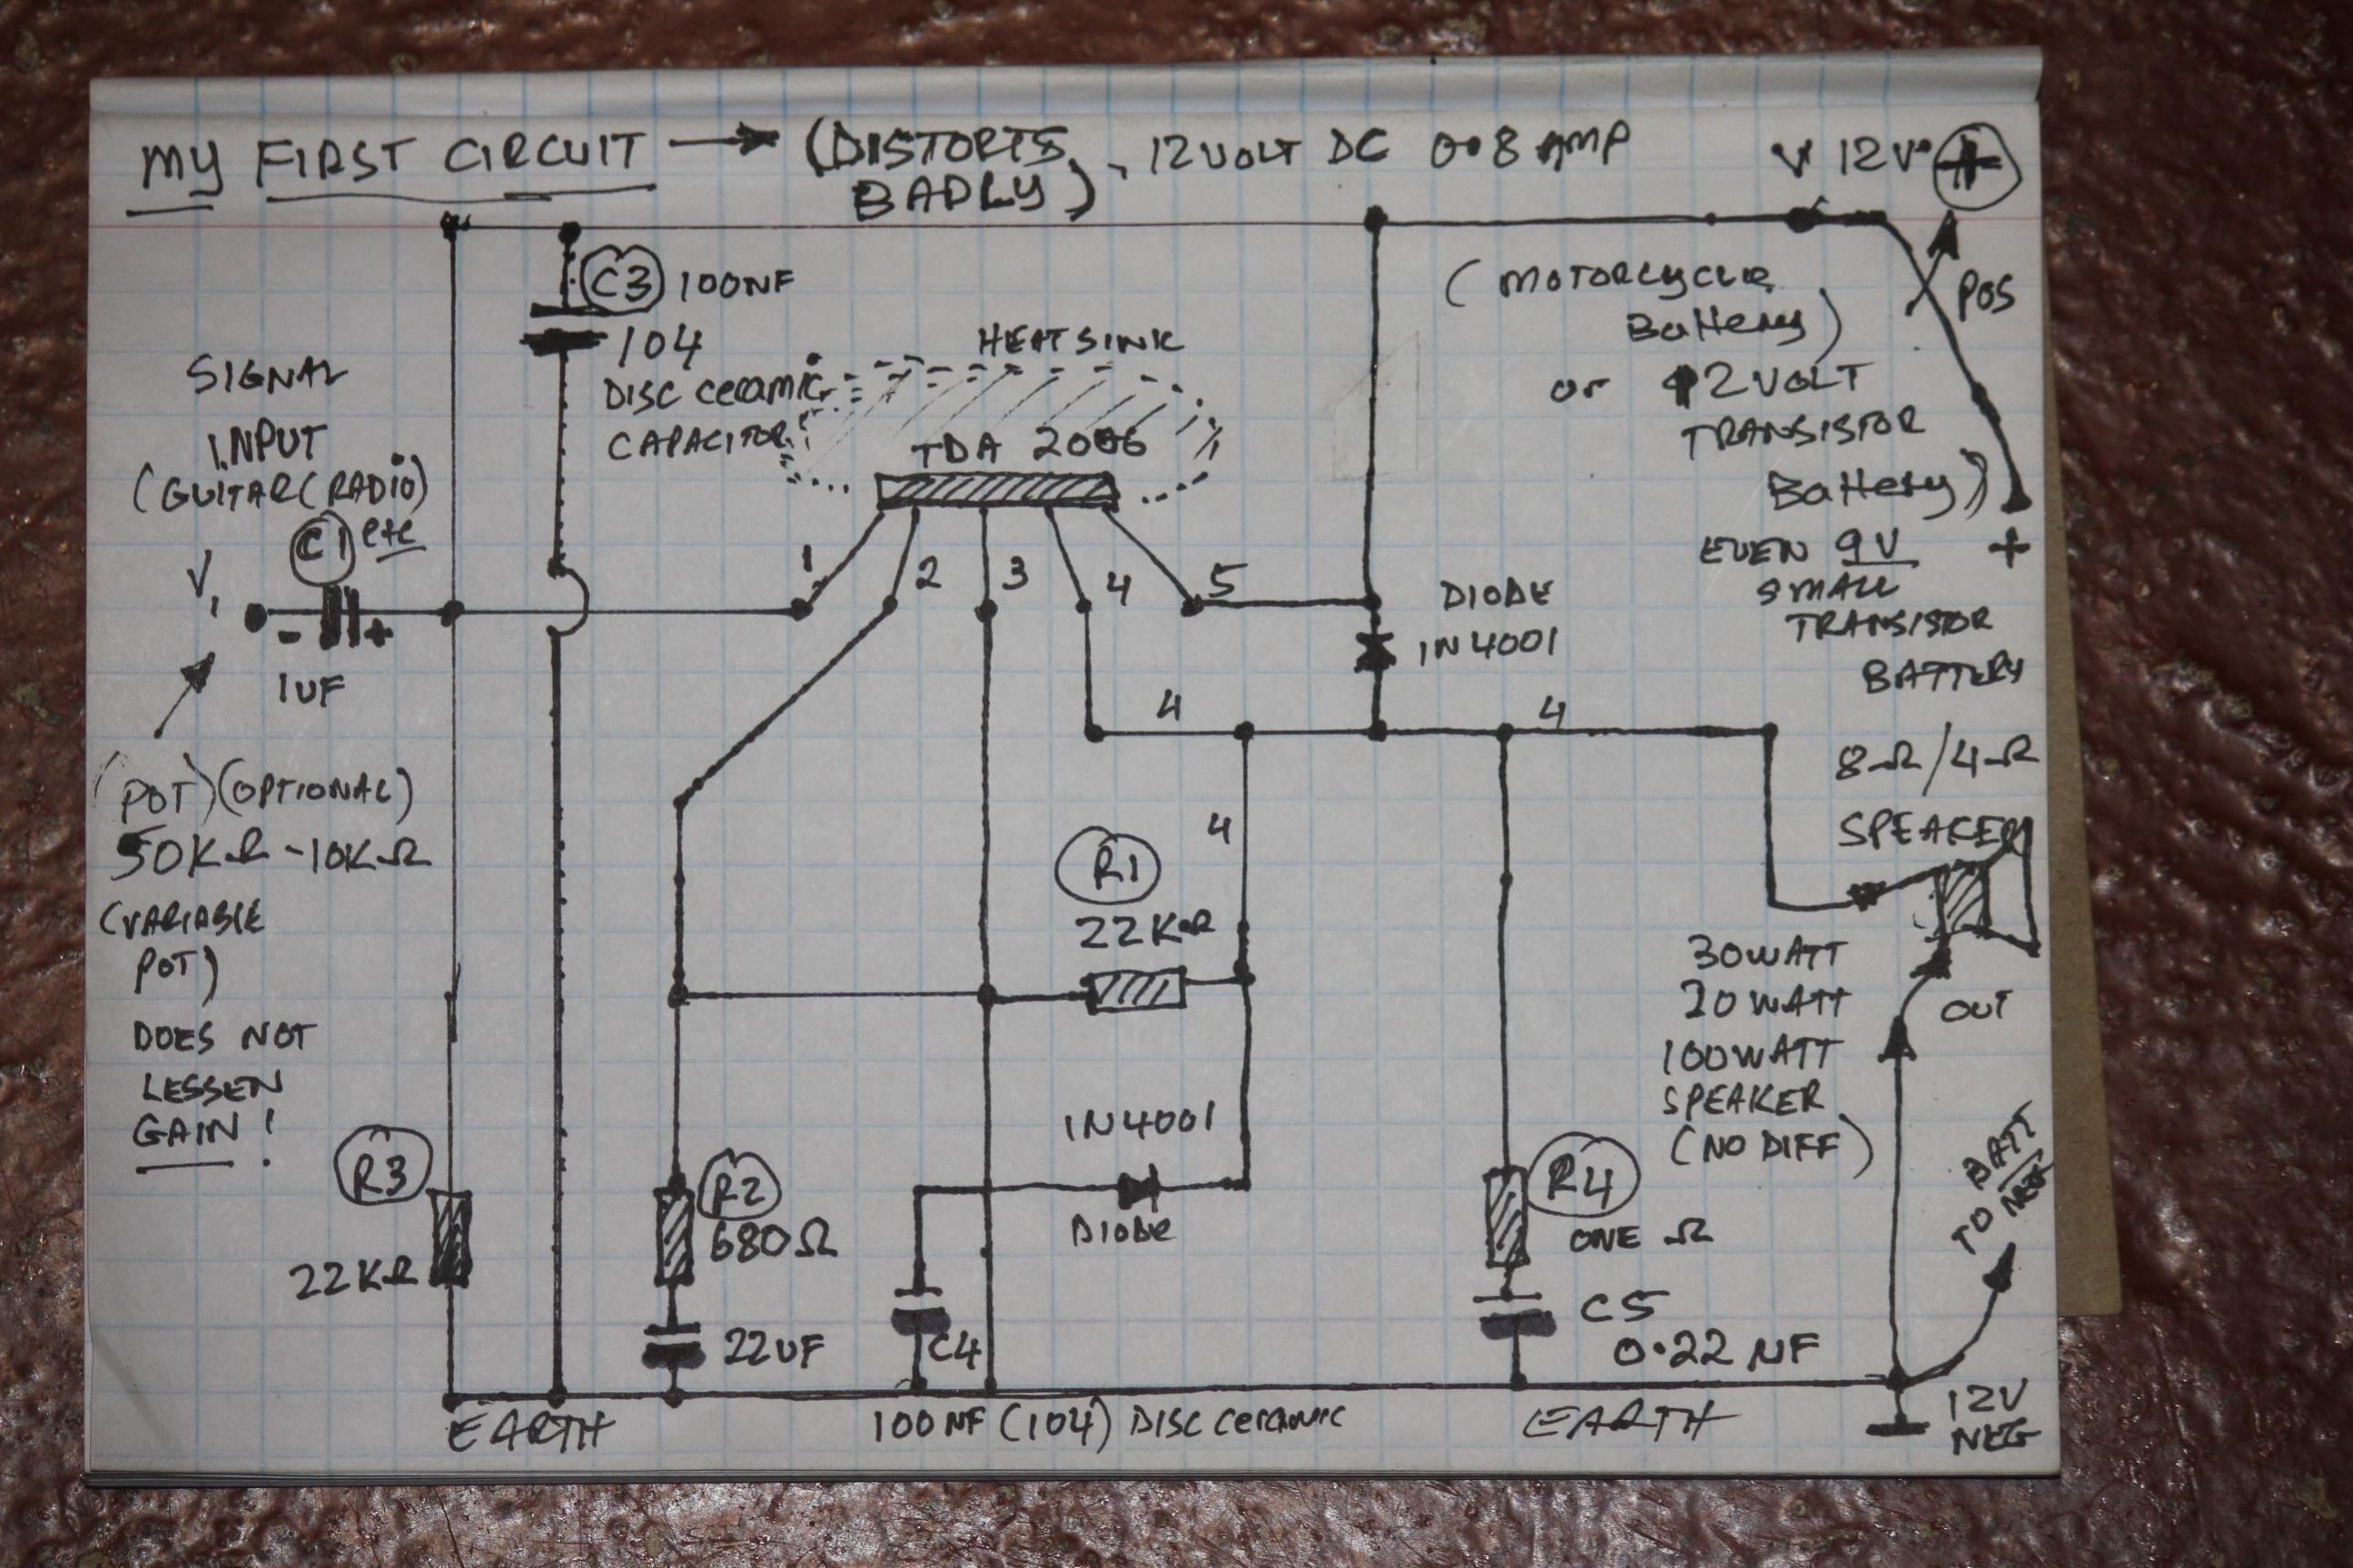 MY FIRST CIRCUIT → (DISTORTS BADLY), 12VOLT DC 0.8 AMP
V 12V +
C3 100NF
104
DISC ceramic
CAPACITOR
HEATSINK
TDA 2006
SIGNAL
INPUT
(GUITAR (RADIO)
etc
C1
V1
- +
1UF
1 2 3 4 5
(MOTORCYCLE
Battery)
or 12VOLT
TRANSISTOR
Battery)
EVEN 9V
SMALL
TRANSISTOR
BATTERY
POS
+
DIODE
1N4001
4 4
4
(POT) (OPTIONAL)
50KΩ - 10KΩ
(VARIABLE
POT)
DOES NOT
LESSEN
GAIN!
R1
22KΩ
8Ω/4Ω
SPEAKER
30WATT
20WATT
100WATT
SPEAKER
(NO DIFF)
OUT
TO BATT NEG
R3
22KΩ
R2
680Ω
22UF
1N4001
DIODE
C4
R4
ONE Ω
C5
0.22 NF
EARTH
100NF (104) DISC CERAMIC
EARTH
12V
NEG